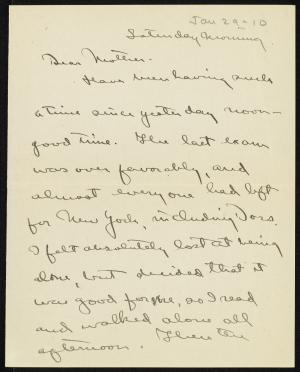 Jan 29-10
Saturday Morning.
Dear Mother-
Have been having such
a time since yesterday noon-
good time. The last exam
was over favorably, and
almost everyone had left
for New York, including Dors.
I felt absolutely lost at being
alone, but decided that it
was good for me, so I read
and walked alone all
afternoon. Then the